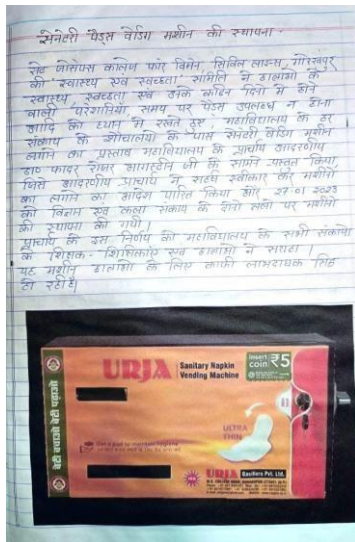 सेनेटरी पैड्स वेडिंग मशीन की स्थापना -
सेंट जोसेफ्स कॉलेज फॉर विमेन, सिविल लाइन्स, गोरखपुर
की 'स्वास्थ्य एवं स्वच्छता' समिति ने छात्राओं के
स्वास्थ्य, स्वच्छता एवं उनके कठिन दिनों में होने
वाली परेशानियां, समय पर पैड्स उपलब्ध न होना
आदि को ध्यान में रखते हुए महाविद्यालय के हर
संकाय के शौचालयों के पास सेनेटरी वेडिंग मशीन
लगाने का प्रस्ताव महाविद्यालय के प्राचार्य आदरणीय
डा० फादर रोजर आगस्टीन जी के सामने प्रस्तुत किया
जिसे आदरणीय प्राचार्य ने सहर्ष स्वीकार कर मशीनों
को लगाने का आदेश पारित किया और 27-01-2023
को विज्ञान एवं कला संकाय के दोनों तलों पर मशीनों
की स्थापना की गयी।
प्राचार्य के इस निर्णय को महाविद्यालय के सभी संकायों
के शिक्षक - शिक्षिकाएं एवं छात्राओं ने सराहा।
यह मशीन छात्राओं के लिए काफी लाभदायक सिद्ध
हो रही है।
बेटी बचाओ बेटी पढ़ाओ
URJA Sanitary Napkin
Vending Machine
Insert
coin ₹5
ULTRA
THIN
Use a pad to maintain hygiene
URJA Basillers Pvt. Ltd.